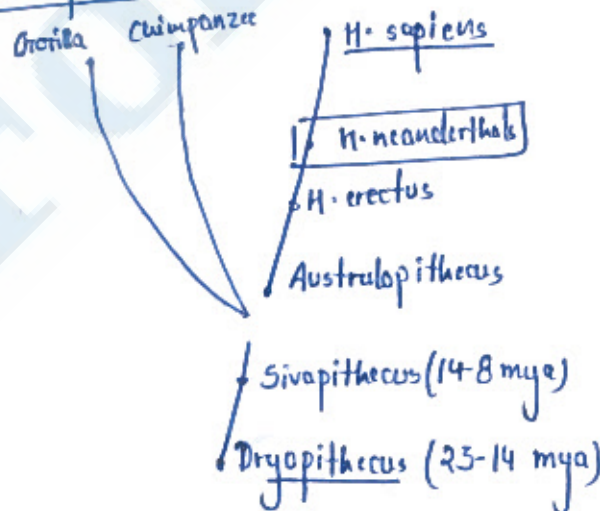 Gorilla Chimpanzee H. sapiens
H. neanderthals
H. erectus
Australopithecus
Sivapithecus (14-8 mya)
Dryopithecus (25-14 mya)